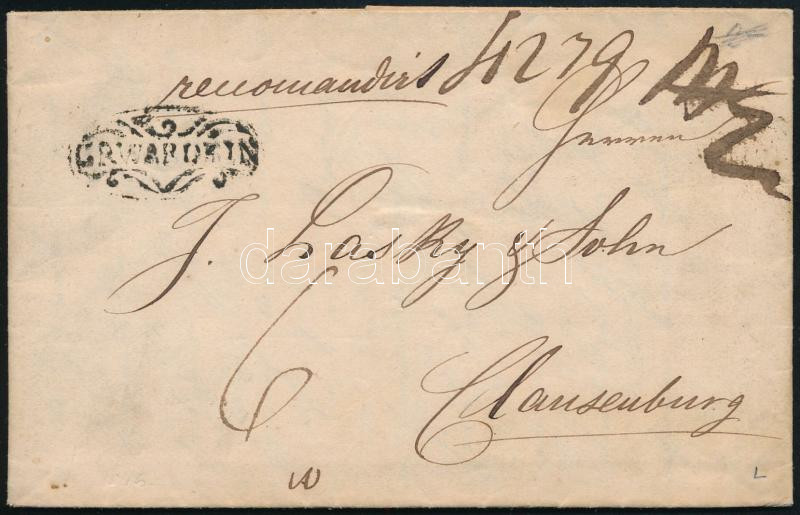 recomandirt 4279
GRWARDEIN
Herren
J. Lasky & Sohn
darabanth
6
Clausenburg
L